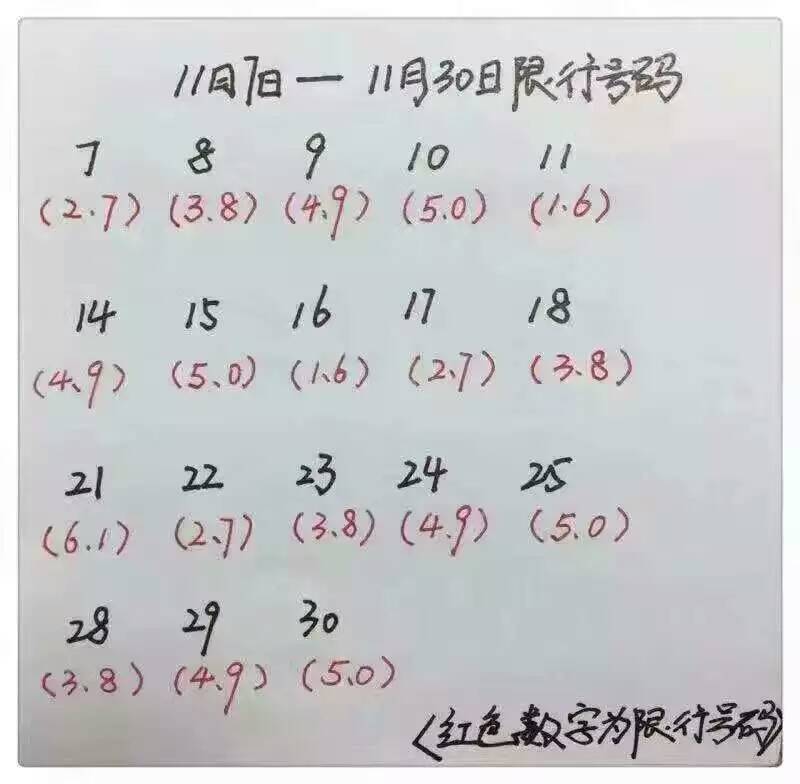 11月7日一11月30日限行号码
7 8 9 10 11
(2.7) (3.8) (4.9) (5.0) (1.6)
14 15 16 17 18
(4.9) (5.0) (1.6) (2.7) (3.8)
21 22 23 24 25
(6.1) (2.7) (3.8) (4.9) (5.0)
28 29 30
(3.8) (4.9) (5.0)
(红色数字为限行号码)